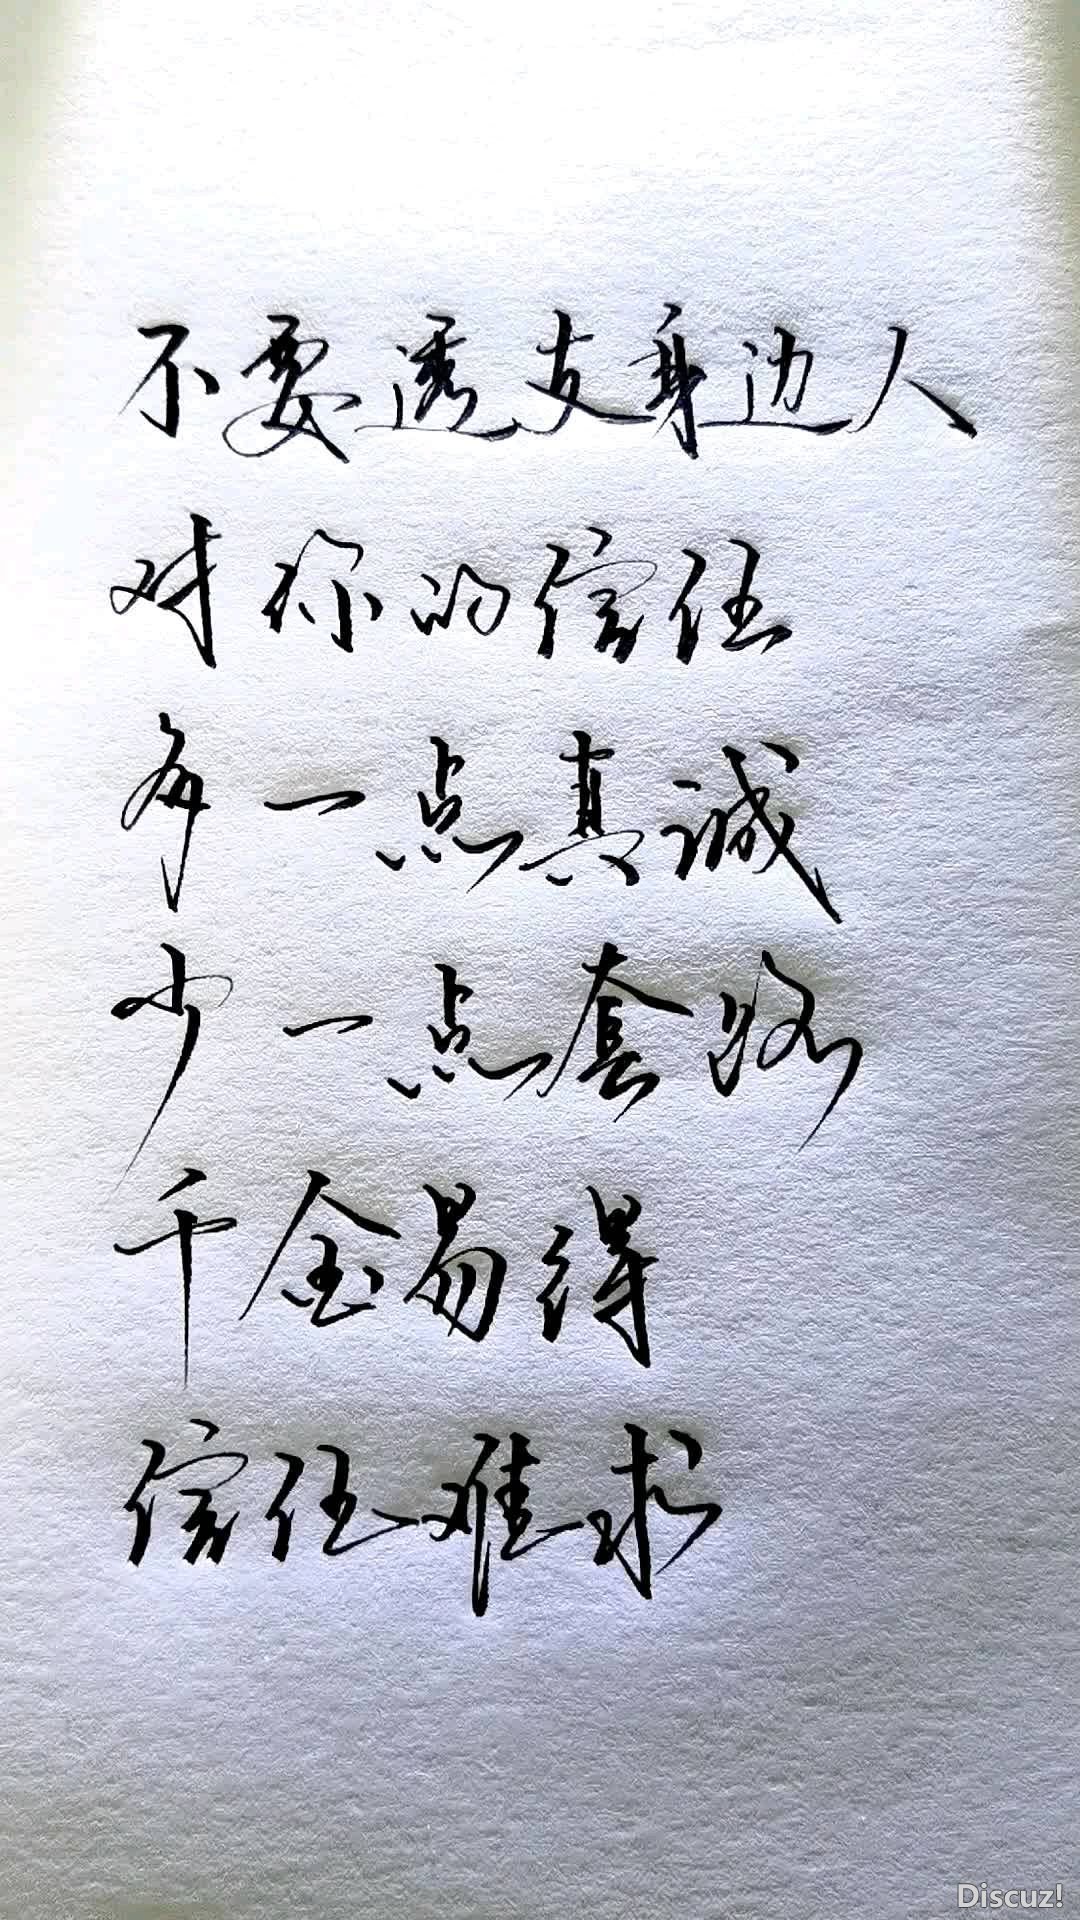 不要透支身边人
对你的信任
多一点真诚
少一点套路
千金易得
信任难求
Discuz!